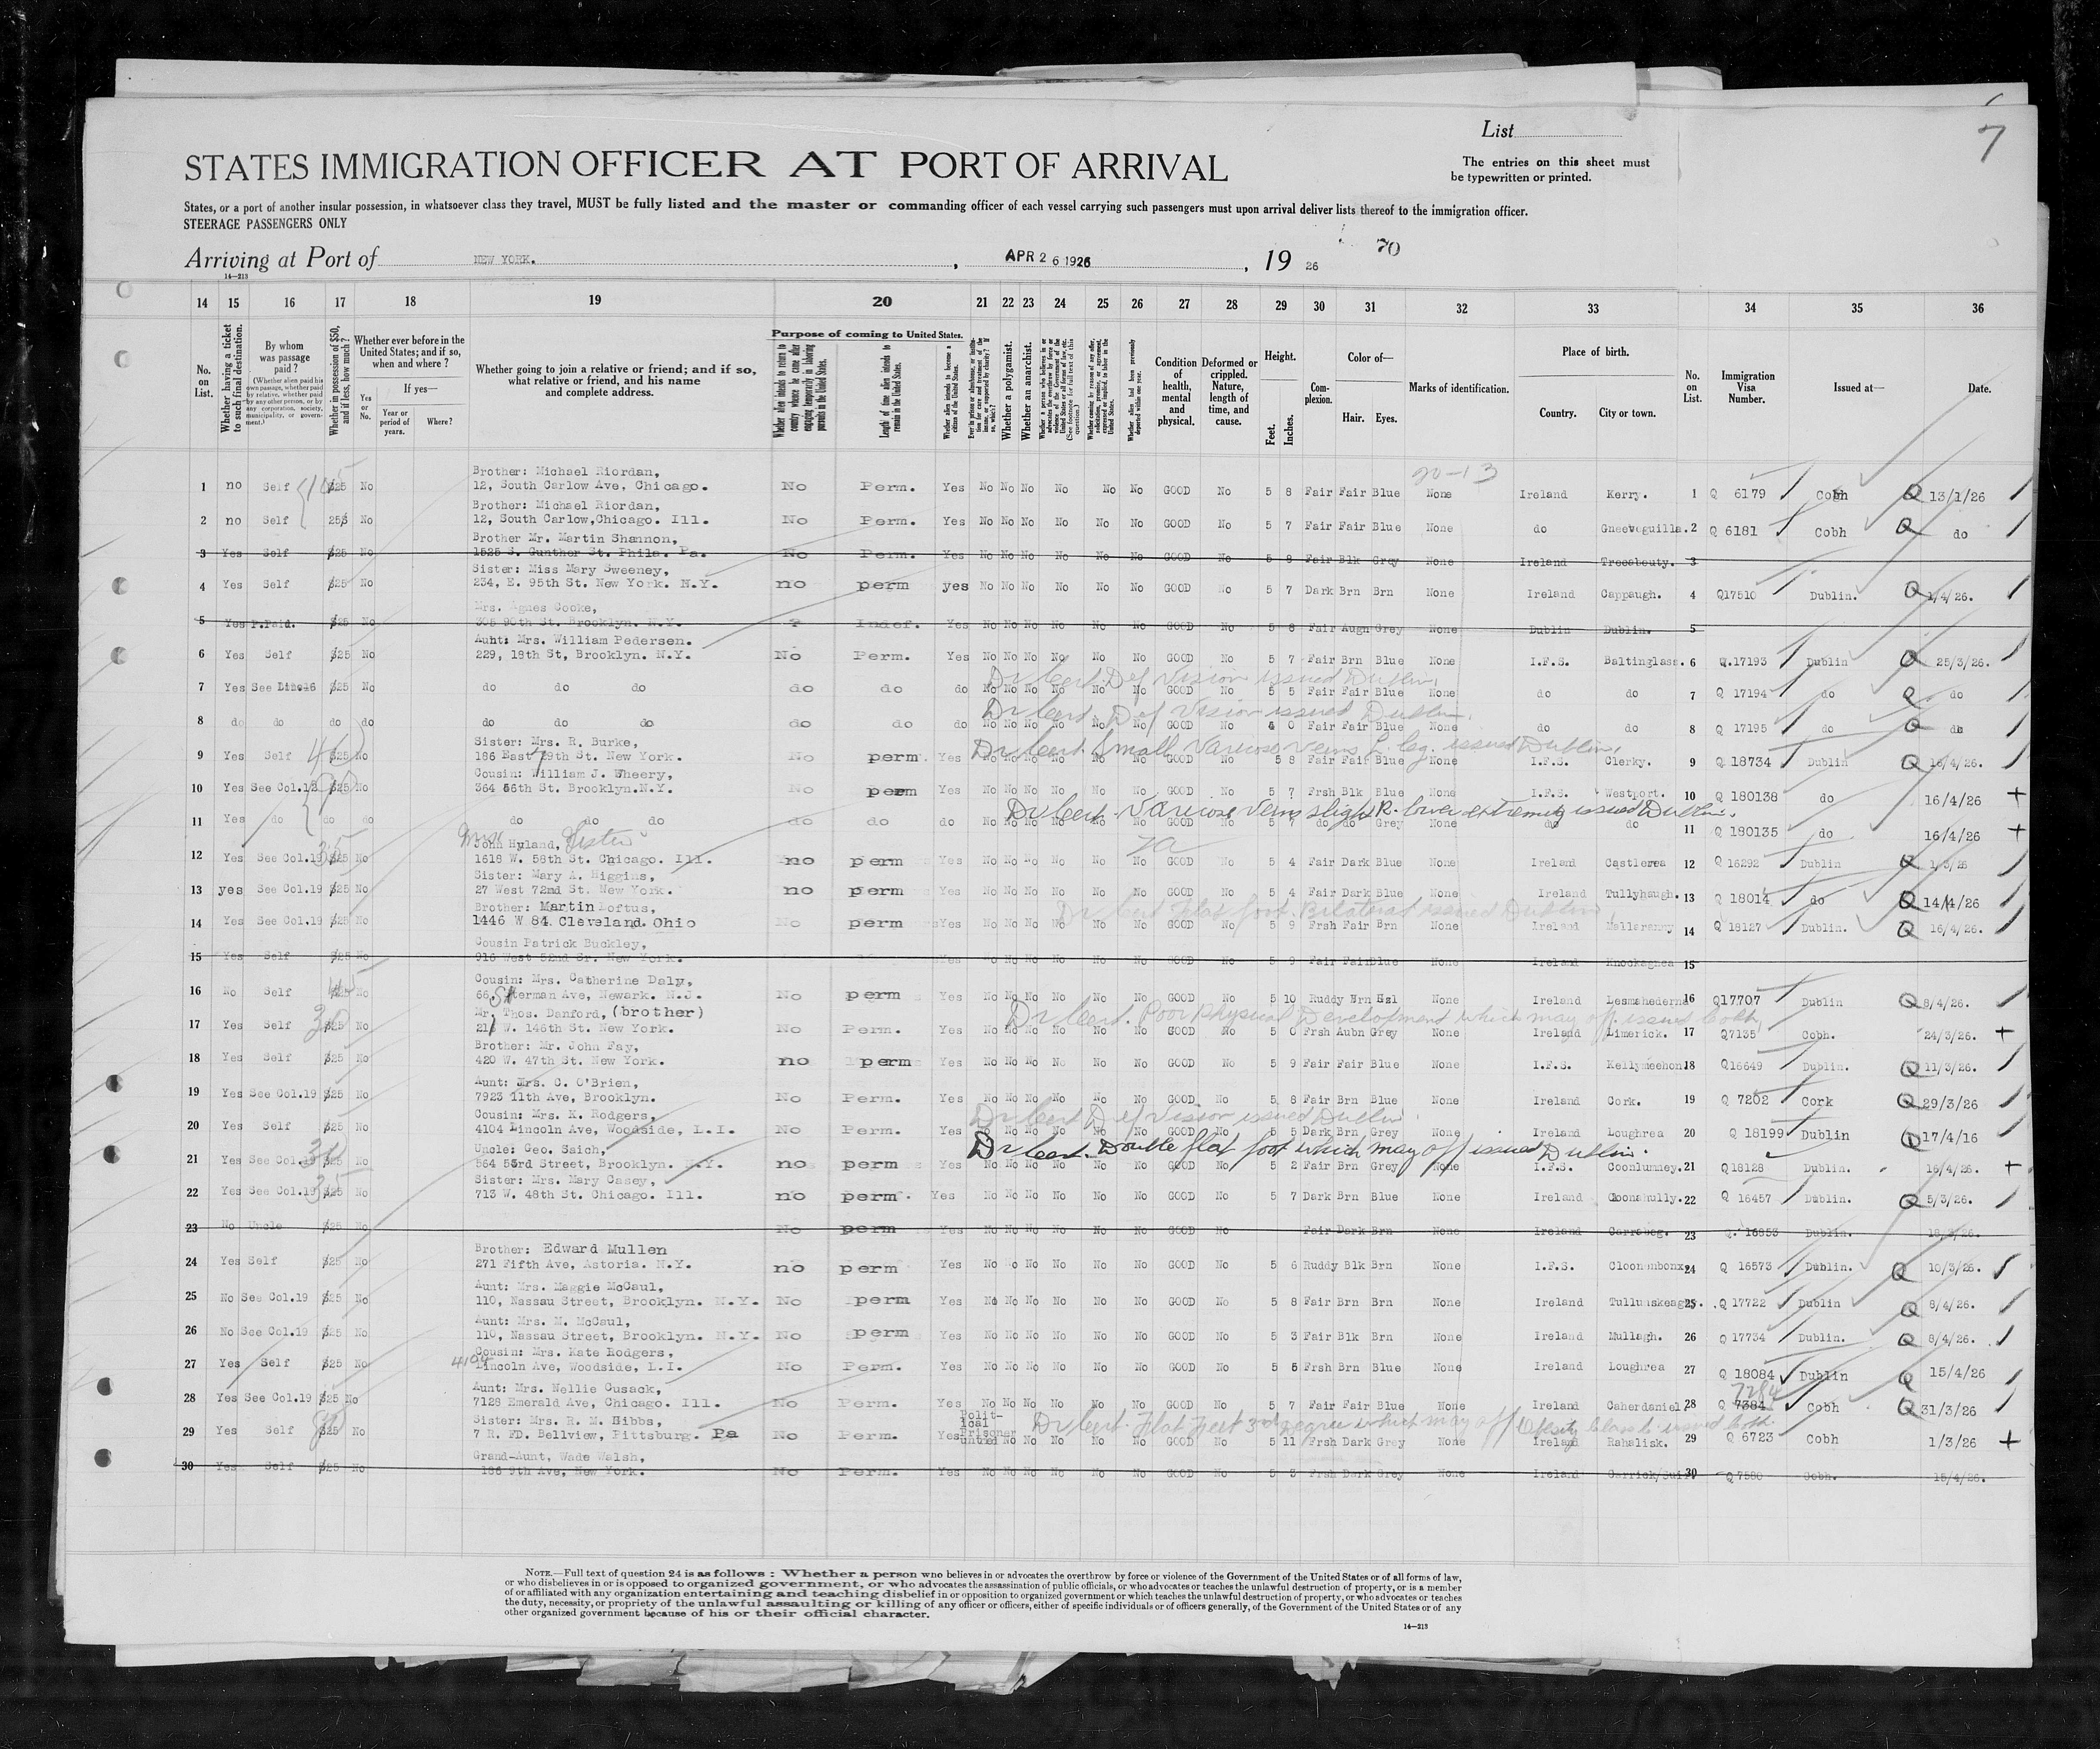 List
7
STATES IMMIGRATION OFFICER AT PORT OF ARRIVAL
The entries on this sheet must
be typewritten or printed.
States, or a port of another insular possession, in whatsoever class they travel, MUST be fully listed and the master or commanding officer of each vessel carrying such passengers must upon arrival deliver lists thereof to the immigration officer.
STEERAGE PASSENGERS ONLY
Arriving at Port of NEW YORK. , APR 26 1926 , 19 26 70
14—213
14 15 16 17 18 19 20 21 22 23 24 25 26 27 28 29 30 31 32 33 34 35 36
No. on List.
Whether having a ticket to such final destination.
By whom was passage paid?
(Whether alien paid his own passage, whether paid by relative, whether paid by any other person, or by any corporation, society, municipality, or government.)
Whether in possession of $50, and if less, how much?
Whether ever before in the United States; and if so, when and where?
Yes or No.
If yes—
Year or period of years.
Where?
Whether going to join a relative or friend; and if so, what relative or friend, and his name and complete address.
Purpose of coming to United States.
Whether alien intends to return to country whence he came after engaging temporarily in laboring pursuits in the United States.
Length of time alien intends to remain in the United States.
Whether alien intends to become a citizen of the United States.
Whether a polygamist.
Whether an anarchist.
Condition of health, mental and physical.
Deformed or crippled. Nature, length of time, and cause.
Height.
Feet.
Inches.
Complexion.
Color of—
Hair. Eyes.
Marks of identification.
Place of birth.
Country. City or town.
No. on List.
Immigration Visa Number.
Issued at—
Date.
20-13
Brother: Michael Riordan,
1 no Self $25 No 12, South Carlow Ave, Chicago. No Perm. Yes No No No No No No GOOD No 5 8 Fair Fair Blue None Ireland Kerry. 1 Q 6179 Cobh Q 13/1/26
Brother: Michael Riordan,
2 no Self 25$ No 12, South Carlow,Chicago. Ill. No Perm. Yes No No No No No No GOOD No 5 7 Fair Fair Blue None do Gneeveguilla. 2 Q 6181 Cobh Q do
Brother Mr. Martin Shannon,
3 Yes Self $25 No 1525 S. Gunther St. Phila. Pa. No Perm. Yes No No No No No No GOOD No 5 8 Fair Blk Grey None Ireland 3
Sister: Miss Mary Sweeney,
4 Yes Self $25 No 234, E. 95th St. New York. N.Y. no perm yes No No No No No No GOOD No 5 7 Dark Brn Brn None Ireland Cappaugh. 4 Q17510 Dublin. Q 1/4/26.
Mrs. Agnes Cooke,
5 Yes P.Paid. $25 No 305 90th St. Brooklyn. N.Y. ? Indef. Yes No No No No No No GOOD No 5 8 Fair Augn Grey None Dublin Dublin. 5
Aunt: Mrs. William Pedersen.
6 Yes Self $25 No 229, 18th St, Brooklyn. N.Y. No Perm. Yes No No No No No No GOOD No 5 7 Fair Brn Blue None I.F.S. Baltinglass. 6 Q.17193 Dublin Q 25/3/26.
Dr Cert. Def Vision issued Dublin.
7 Yes See Line 6 $25 No do do do do do do No No No No No No GOOD No 5 5 Fair Fair Blue None do do 7 Q 17194 do Q do
Dr Cert. Def Vision issued Dublin.
8 do do do do do do do do do do No No No No No No GOOD No 4 0 Fair Fair Blue None do do 8 Q 17195 do Q do
Sister: Mrs. R. Burke, Dr Cert. Small Varicose Veins L. leg. issued Dublin.
9 Yes Self 40 $25 No 186 East 79th St. New York. No perm. Yes No No No No No No GOOD No 5 8 Fair Fair Blue None I.F.S. Clerky. 9 Q 18734 Dublin Q 16/4/26.
Cousin: William J. Sheery,
10 Yes See Col.19 $25 No 364 56th St. Brooklyn.N.Y. No perm Yes No No No No No No GOOD No 5 7 Frsh Blk Blue None I.F.S. Westport. 10 Q 180138 do 16/4/26 +
Dr Cert. Varicose Veins slight R. lower extremity issued Dublin.
11 Yes do do do do do do do do do No No No No No No GOOD No 5 7 do do Grey None do do 11 Q 180135 do 16/4/26 +
Miss John Hyland, Sister
12 Yes See Col.19 35 $25 No 1618 W. 58th St. Chicago. Ill. no perm Yes No No No No No No GOOD No 5 4 Fair Dark Blue None Ireland Castlerea 12 Q 16292 Dublin Q 1/3/26
Sister: Mary A. Higgins,
13 yes See Col.19 $25 No 27 West 72nd St. New York. no perm Yes No No No No No No GOOD No 5 4 Fair Dark Blue None Ireland Tullyhaugh. 13 Q 18014 do Q 14/4/26
Brother: Martin Loftus, Dr Cert Flat foot. Bilateral issued Dublin.
14 Yes See Col.19 $25 No 1446 W 84. Cleveland. Ohio No perm Yes No No No No No No GOOD No 5 9 Frsh Fair Brn None Ireland Mallaranny 14 Q 18127 Dublin. Q 16/4/26.
Cousin Patrick Buckley,
15 Yes Self $25 No 916 West 52nd Sr. New York. Yes No No No No No No GOOD No 5 9 Fair Fair Blue None Ireland Knockagnea 15
Cousin: Mrs. Catherine Daly,
16 No Self $25 No 66, Sherman Ave, Newark. N.J. No perm Yes No No No No No No GOOD No 5 10 Ruddy Brn Hzl None Ireland 16 Q17707 Dublin Q 8/4/26.
Mr. Thos. Danford, (brother) Dr Cert. Poor Physical Development which may aff. issued Cobh
17 Yes Self 30 $25 No W. 146th St. New York. No Perm. Yes No No No No No No GOOD No 5 0 Frsh Aubn Grey None Ireland Limerick. 17 Q7135 Cobh. 24/3/26. +
Brother: Mr. John Fay,
18 Yes Self $25 No 420 W. 47th St. New York. no perm Yes No No No No No No GOOD No 5 9 Fair Fair Blue None I.F.S. Kellymeehon 18 Q16649 Dublin. Q 11/3/26.
Aunt: Mrs. C. O'Brien,
19 Yes See Col.19 $25 No 7923 11th Ave, Brooklyn. No Perm. Yes No No No No No No GOOD No 5 8 Fair Brn Blue None Ireland Cork. 19 Q 7202 Cork Q 29/3/26
Cousin: Mrs. K. Rodgers, Dr Cert Def Vision issued Dublin
20 Yes Self $25 No 4104 Lincoln Ave, Woodside, L.I. No Perm. Yes No No No No No No GOOD No 5 5 Dark Brn Grey None Ireland Loughrea 20 Q 18199 Dublin Q 17/4/16
Uncle: Geo. Saich, Dr Cert. Double flat foot which may aff issued Dublin.
21 Yes See Col.19 30 $25 No 564 53rd Street, Brooklyn. N.Y. no perm Yes No No No No No No GOOD No 5 2 Fair Brn Grey None I.F.S. Coonlumney. 21 Q18128 Dublin. 16/4/26. +
Sister: Mrs. Mary Casey,
22 Yes See Col.19 35 $25 No 713 W. 48th St. Chicago. Ill. no perm. Yes No No No No No No GOOD No 5 7 Dark Brn Blue None Ireland Cloonahully. 22 Q 16457 Dublin. Q 5/3/26.
23 No Uncle $25 No No perm Yes No No No No No No GOOD No Fair Dark Brn None Ireland Carrabeg. 23 Q. 16853 Dublin. 18/3/26.
Brother: Edward Mullen
24 Yes Self $25 No 271 Fifth Ave, Astoria. N.Y. no perm Yes No No No No No No GOOD No 5 6 Ruddy Blk Brn None I.F.S. 24 Q 16573 Dublin. Q 10/3/26.
Aunt: Mrs. Maggie McCaul,
25 No See Col.19 $25 No 110, Nassau Street, Brooklyn. N.Y. No perm Yes No No No No No No GOOD No 5 8 Fair Brn Brn None Ireland 25 Q 17722 Dublin Q 8/4/26.
Aunt: Mrs. M. McCaul,
26 No See Col.19 $25 No 110, Nassau Street, Brooklyn. N.Y. No perm Yes No No No No No No GOOD No 5 3 Fair Blk Brn None Ireland Mullagh. 26 Q 17734 Dublin. Q 8/4/26.
Cousin: Mrs. Kate Rodgers,
27 Yes Self $25 No 4104 Lincoln Ave, Woodside, L.I. No Perm. Yes No No No No No No GOOD No 5 5 Frsh Brn Blue None Ireland Loughrea 27 Q 18084 Dublin Q 15/4/26
Aunt: Mrs. Nellie Cusack, 7284
28 Yes See Col.19 $25 No 7128 Emerald Ave, Chicago. Ill. No Perm. Yes No No No No No No GOOD No 5 7 Fair Fair Blue None Ireland Caherdaniel 28 Q 7384 Cobh Q 31/3/26
Sister: Mrs. R. M. Hibbs, Political Prisoner untried Dr Cert. Flat Feet 3rd Degree which may aff issued Cobh
29 Yes Self $25 No 7 R. FD. Bellview, Pittsburg. Pa No Perm. Yes No No No No No GOOD No 5 11 Frsh Dark Grey None Ireland Rahalisk. 29 Q 6723 Cobh 1/3/26 +
Grand-Aunt, Wade Walsh,
30 Yes Self $25 No 186 9th Ave, New York. No Perm. Yes No No No No No No GOOD No 5 3 Frsh Dark Grey None Ireland Carrick/Suir. 30 Q 7580 Cobh. 15/4/26.
NOTE.—Full text of question 24 is as follows: Whether a person who believes in or advocates the overthrow by force or violence of the Government of the United States or of all forms of law,
or who disbelieves in or is opposed to organized government, or who advocates the assassination of public officials, or who advocates or teaches the unlawful destruction of property, or is a member
of or affiliated with any organization entertaining and teaching disbelief in or opposition to organized government or which teaches the unlawful destruction of property, or who advocates or teaches
the duty, necessity, or propriety of the unlawful assaulting or killing of any officer or officers, either of specific individuals or of officers generally, of the Government of the United States or of any
other organized government because of his or their official character.
14—213